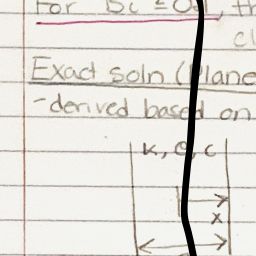 For Bi ≤ 0. , th
cl
Exact soln (Plane
-derived based on
K, ρ, c
x